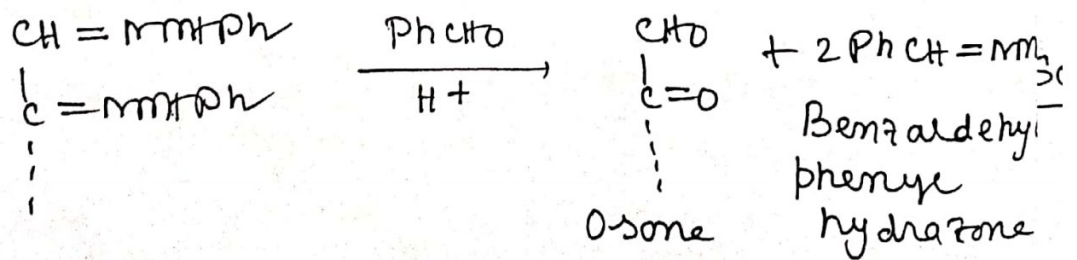 CH = NNHPh
C = NNHPh
PhCHO
H+
CHO
C=O
Osone
+ 2 PhCH = NN
Benzaldehy
phenyl
hydrazone